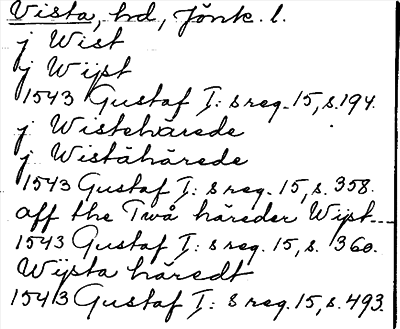 Vista, hd, Jönk. l.
j Wist
j Wijst
1543 Gustaf I: s reg. 15, s. 194.
j Wistehärede
j Wistähärede
1543 Gustaf I: s reg. 15, s. 358.
aff the Twå häreder Wijst---
1543 Gustaf I: s reg. 15, s. 360.
Wijsta häredt
1543 Gustaf I: s reg. 15, s. 493.